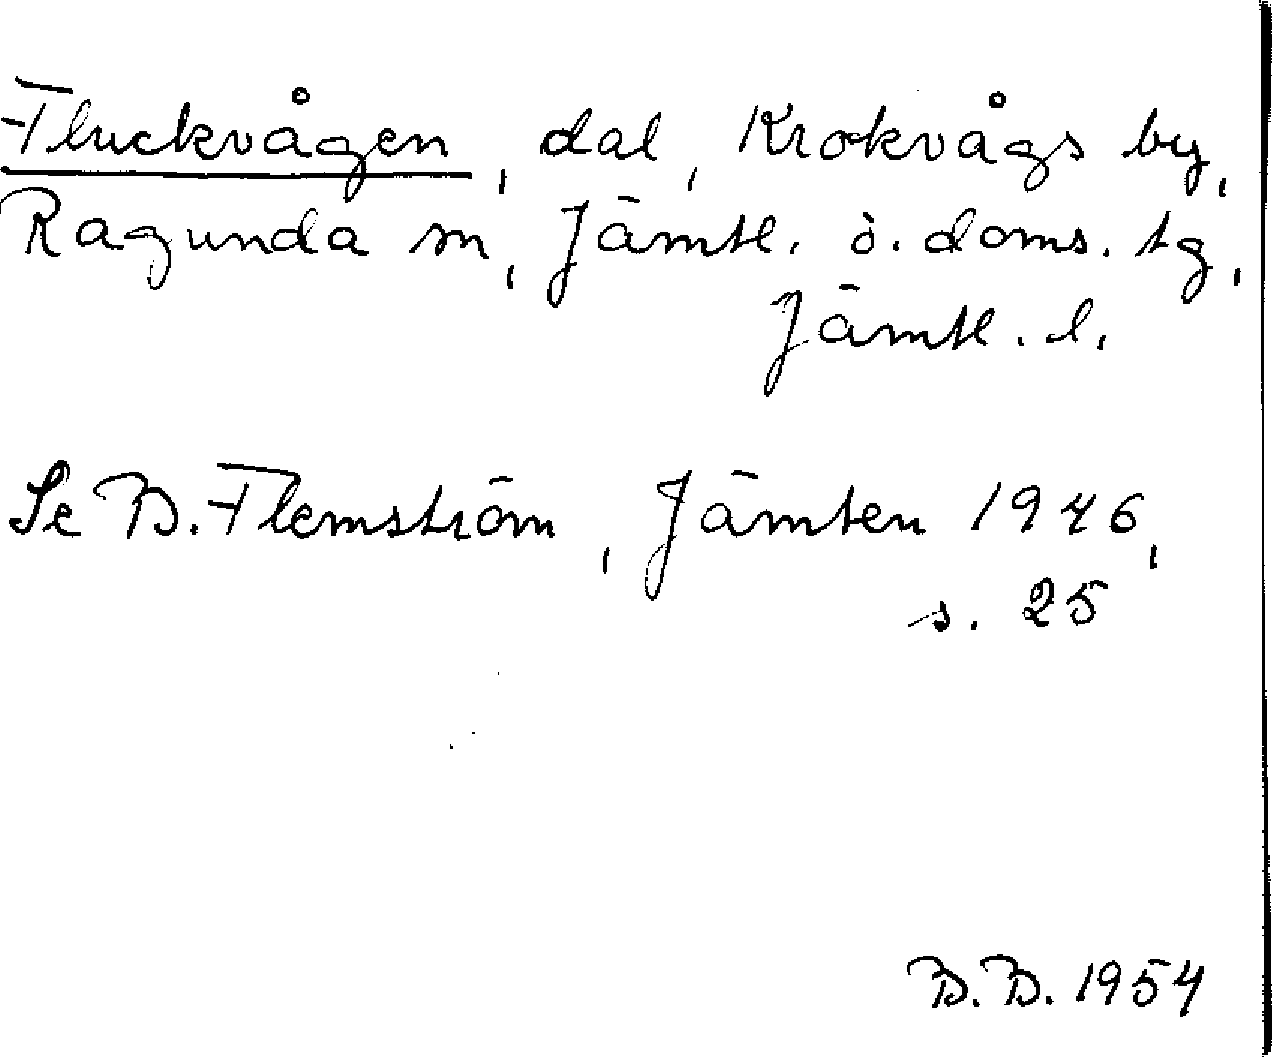 Fluckvågen, dal, Krokvågs by,
Ragunda sn, Jämtl. ö. doms. tg,
Jämtl. l.
Se B. Flemström, Jämten 1946,
s. 25
B.B. 1954